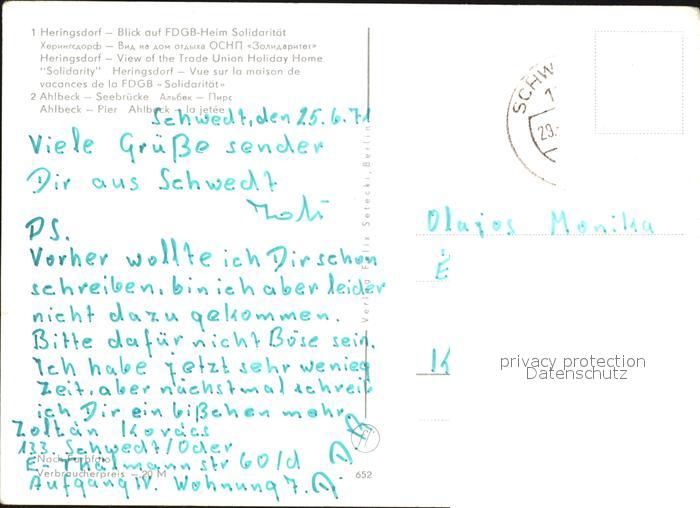 1 Heringsdorf – Blick auf FDGB-Heim Solidarität
Херингсдорф – Вид на дом отдыха ОСНП «Золидаритет»
Heringsdorf – View of the Trade Union Holiday Home
"Solidarity" Heringsdorf – Vue sur la maison de
vacances de la FDGB «Solidarität»
2 Ahlbeck – Seebrücke Альбек – Пирс
Ahlbeck – Pier Ahlbeck – la jetée
Schwedt, den 25.6.71
Viele Grüße sender
Dir aus Schwedt
Zoli
PS.
Vorher wollte ich Dir schon
schreiben, bin ich aber leider
nicht dazu gekommen.
Bitte dafür nicht Böse sein.
Ich habe jetzt sehr wenieg
Zeit, aber nächstmal schreib
ich Dir ein bißchen mehr
Zoltán Kovács
133. Schwedt/Oder
E-Thälmann str 60/d
Aufgang IV. Wohnung 7.
Nach Farbfoto
Verbraucherpreis – 20 M
652
Verlag Felix Setecki, Berlin
SCHW
29.
Olajos Monika
É
K
privacy protection
Datenschutz